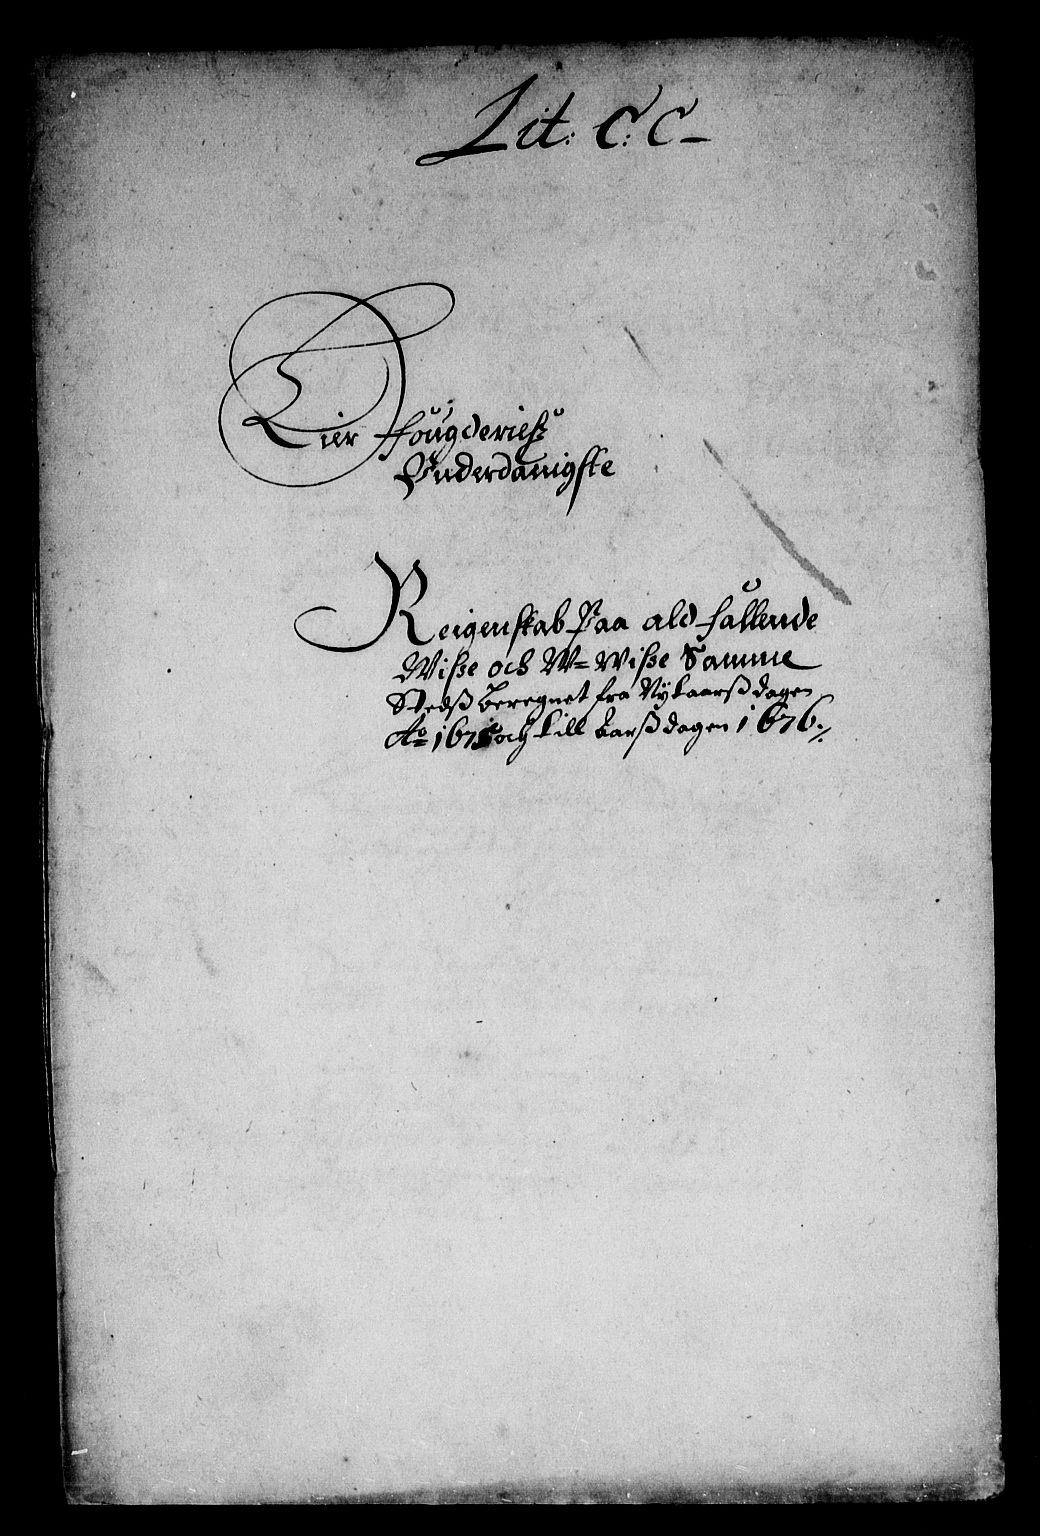 Lit: C: C
Lier fougderies
Underdanigste
Reigenskab Paa ald fallende
Wisse och W= Wisse Samme
Stedß beregnet fra Nÿtaarß dagen
Ao 1675 och till aarß dagen 1676 ./.